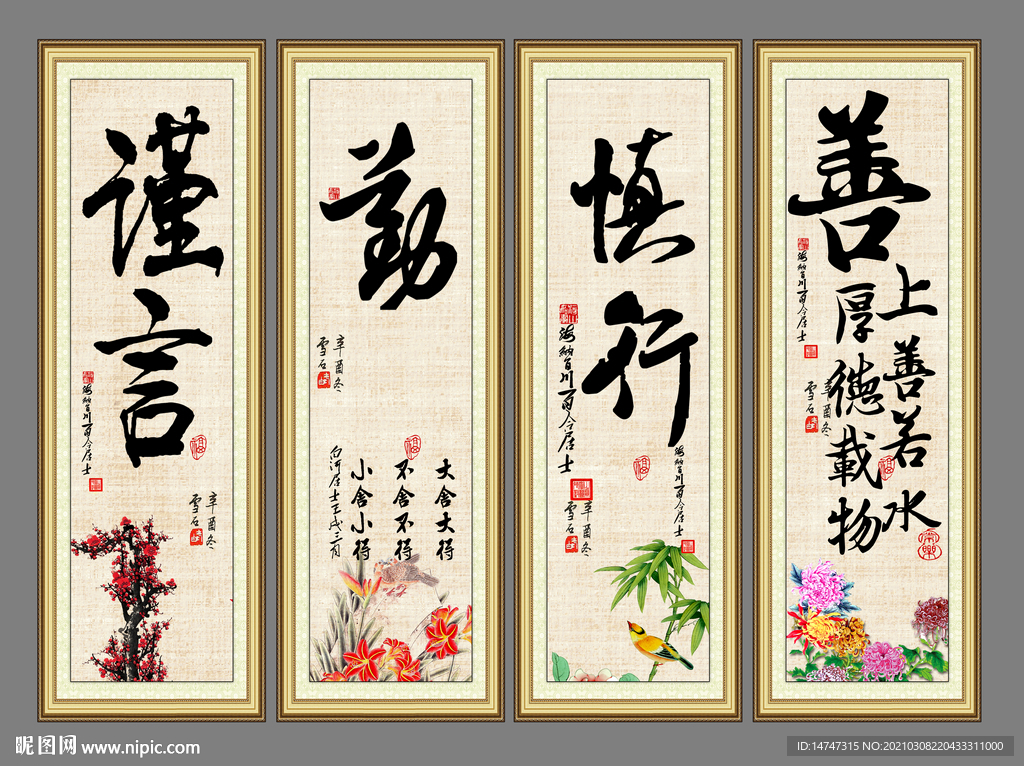 謹言
海納百川
居士
辛酉冬
雪石
勤
辛酉冬
雪石
大舍大得
不舍不得
小舍小得
白河居士壬戌三月
慎行
海納百川
居士
海納百川
居士
辛酉冬
雪石
善
上善若水
厚德載物
海納百川
居士
辛酉冬
雪石
昵图网 www.nipic.com
ID:14747315 NO:20210308220433311000